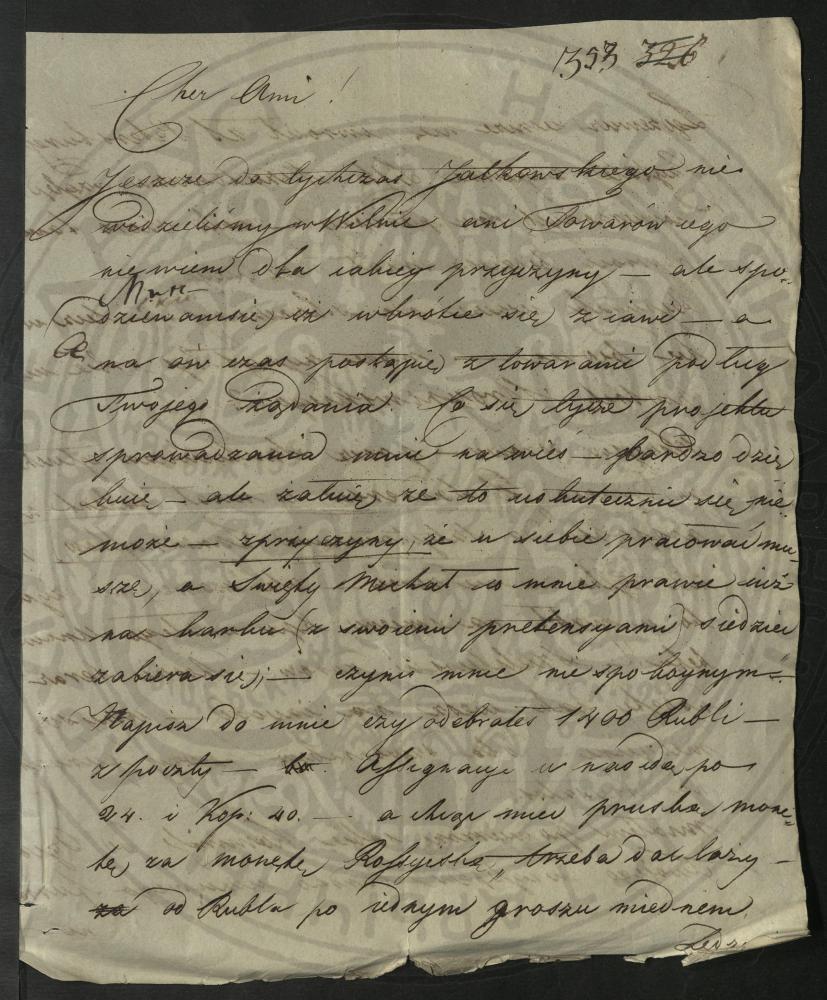 353 326
Cher Ami!
Jeszcze dotychczas Jałkowskiego nie
widzieliśmy w Wilnie ani Towarów iego
nie wiem dla iakiey przyczyny — ale spo-
dziewamsię, że wkrótce się ziawi — a
na ów czas postąpię z towarami podług
Twojego żądania. Co się tycze projektu
sprowadzania mnie na wieś — bardzo dzię
kuię — ale żałuię, że to uskutecznić się nie
może — z przyczyny, że u siebie pracować mu-
szę, a Święty Michał co mnie prawie iuż
na karku (z swoiemi pretensyami) siedzieć
zabiera się; — czyni mnie niespokoynym —
Napisz do mnie czy odebrałeś 1400 Rubli —
z poczty — Assygnacye u nas idą po
24. i Kop: 40. — a chcąc mieć pruską mone-
tę za monetę Rossyiską, trzeba dać laży —
za od Rubla po iednym groszu miednem